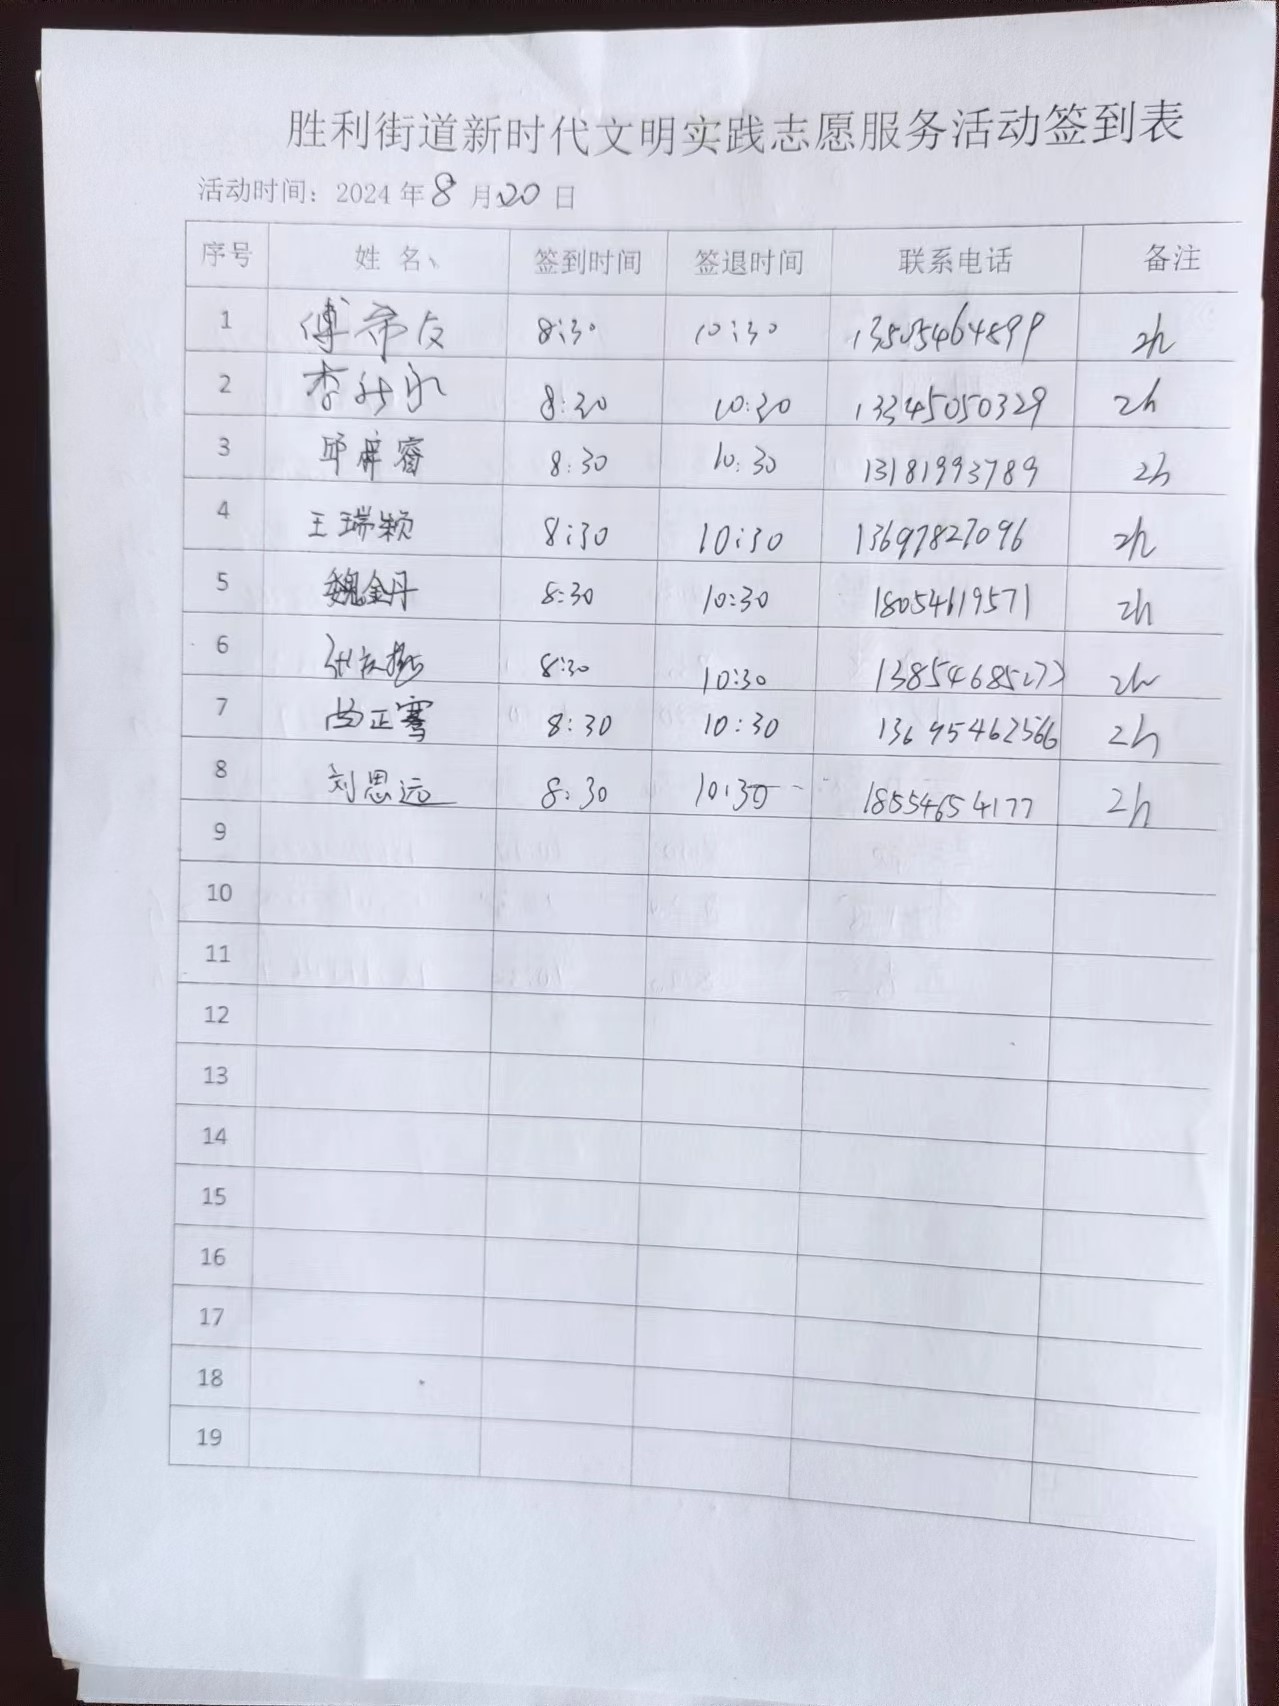 胜利街道新时代文明实践志愿服务活动签到表
活动时间：2024年8月20日
序号 姓 名、 签到时间 签退时间 联系电话 备注
1 傅希友 8:30 10:30 13505464899 2h
2 李 永 8:30 10:30 13345050329 2h
3 8:30 10:30 13181993789 2h
4 王瑞颖 8:30 10:30 13697827096 2h
5 魏金丹 8:30 10:30 18054619571 2h
6 张 8:30 10:30 2h
7 尚正骞 8:30 10:30 13695462566 2h
8 刘思远 8:30 10:30 18554654177 2h
9
10
11
12
13
14
15
16
17
18
19